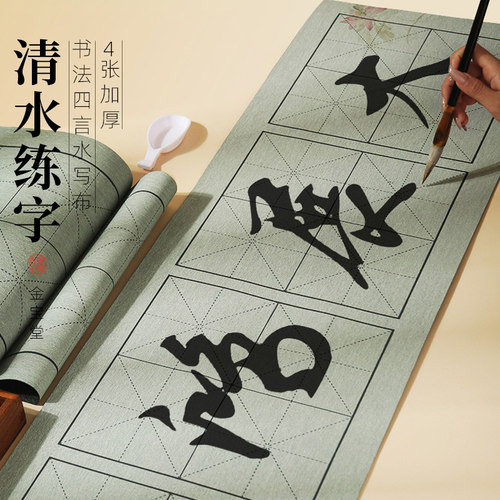 清水练字
书法四言水写布
4张加厚
金宝堂
大展鸿